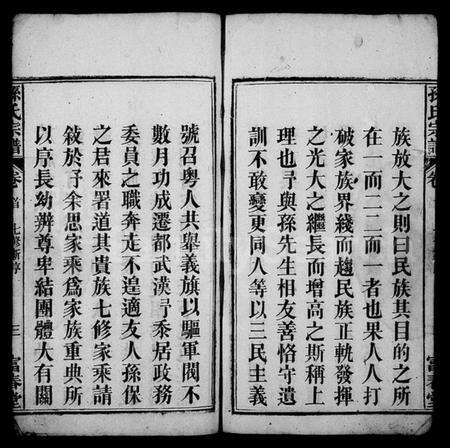 孫氏宗譜 卷
富春堂
族放大之則曰民族其目的之所
在一而二二而一者也果人人打
破家族界綫而趨民族正軌發揮
之光大之繼長而增高之斯稱上
理也予與孫先生相友善恪守遺
訓不敢變更同人等以三民主義
號召粤人共舉義旗以驅軍閥不
數月功成遷都武漢予忝居政務
委員之職奔走不遑適友人孫保
之君來署道其貴族七修家乘請
敘於予余思家乘爲家族重典所
以序長幼辨尊卑結團體大有關
孫氏宗譜 卷首 七修新序 三 富春堂